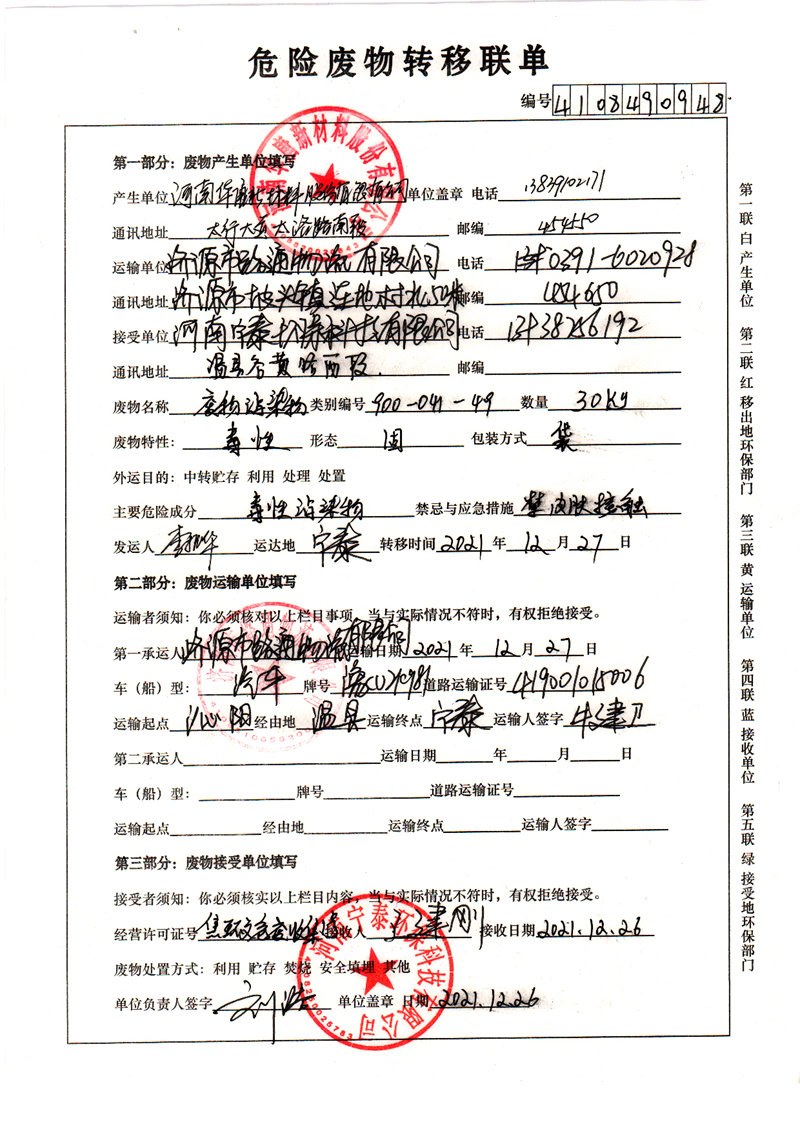 危险废物转移联单
编号 4108490948
第一部分：废物产生单位填写
产生单位 河南华 新材料股份有限公司 单位盖章 电话 13839102171
通讯地址 太行大 南段 邮编 454550
运输单位 济源市路通物流有限公司 电话 0391-6020928
通讯地址 济源市坡头镇连地村 邮编 454650
接受单位 河南宁泰环保科技有限公司 电话 38256192
通讯地址 温县谷黄路西段 邮编
废物名称 废物沾染物 类别编号 900-041-49 数量 30Kg
废物特性： 毒性 形态 固 包装方式 袋
外运目的：中转贮存 利用 处理 处置
主要危险成分 毒性沾染物 禁忌与应急措施 禁皮肤接触
发运人 李 华 运达地 宁泰 转移时间 2021 年 12 月 27 日
第二部分：废物运输单位填写
运输者须知：你必须核对以上栏目事项，当与实际情况不符时，有权拒绝接受。
第一承运人 济源市路通物流有限公司 运输日期 2021 年 12 月 27 日
车（船）型： 汽车 牌号 道路运输证号 419001015006
运输起点 沁阳 经由地 温县 运输终点 宁泰 运输人签字
第二承运人 运输日期 年 月 日
车（船）型： 牌号 道路运输证号
运输起点 经由地 运输终点 运输人签字
第三部分：废物接受单位填写
接受者须知：你必须核实以上栏目内容，当与实际情况不符时，有权拒绝接受。
经营许可证号 接收人 接收日期 2021.12.26
废物处置方式：利用 贮存 焚烧 安全填埋 其他
单位负责人签字 刘浩 单位盖章 日期 2021.12.26
河南宁泰环保科技有限公司
第一联 白 产生单位
第二联 红 移出地环保部门
第三联 黄 运输单位
第四联 蓝 接收单位
第五联 绿 接受地环保部门